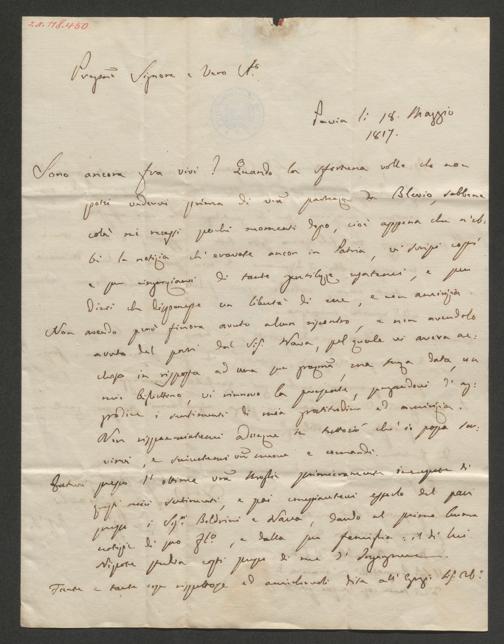 Signore e Vero A.º
Pavia li 18. Maggio
1817.
Sono ancora fra vivi? Quando la sfortuna volle che non
potei vedervi prima di vra partenza da Blevio, sebbene
colà mi recassi pochi momenti dopo, cioè appena che n'eb-
bi la notizia ch'eravate ancor in Patria, vi scrissi
e per ringraziarvi di tante gentilezze usatemi, e per
dirvi che disponeste con libertà di me, e non
Non avendo però finora avuto alcun riscontro, e non avendolo
avuto del pari dal Sigr Nava, pel quale vi aveva ac-
chiusa in risposta ad una sua senza data, un
mio bigliettino, vi rinnovo la presente, pregandovi d'ag-
gradire i sentimenti di mia gratitudine ed amicizia.
Non risparmiatemi adunque in tuttociò ch'io possa ser-
virvi, e scrivetemi e comandi.
presso l'ottima vra Moglie primieramente di
questi miei sentimenti e poi compiacetevi esserlo del pari
presso i Sigri Boldrini e Nava, dando al primo buone
notizie di suo e della sua famiglia: il di lui
Nipote studia costì presso di me d'Ingegnere.
Tante e tante cose rispettose ed amichevoli